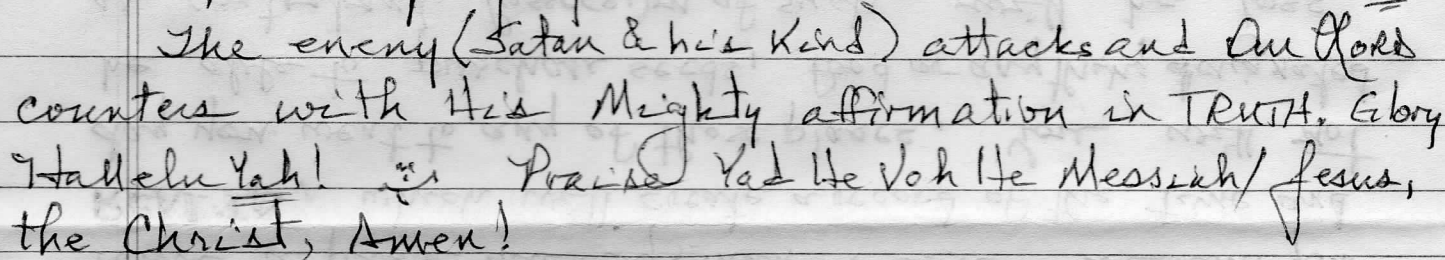 The enemy (Satan & his Kind) attacks and Our LORD
counters with His Mighty affirmation in TRUTH. Glory
HalleluYah! Praise Yad He Voh He Messiah/Jesus,
the Christ, Amen!